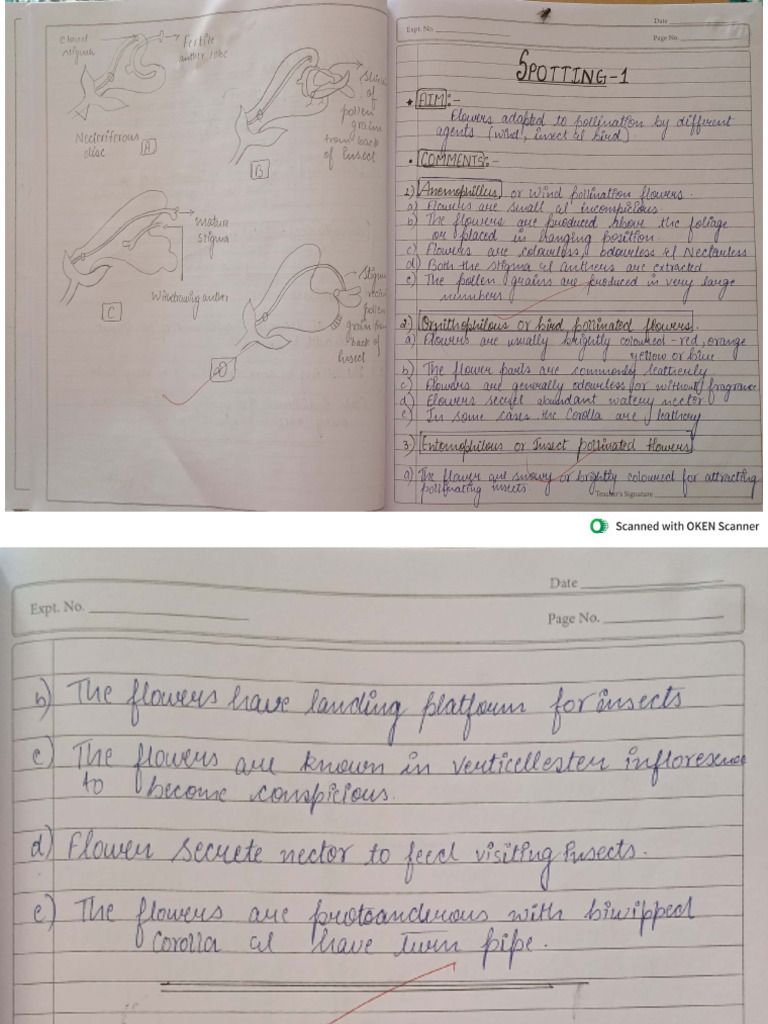 closed
stigma
Fertile
anther lobe
Nectariferous
disc
A
of
pollen
grain
from back
of insect
B
mature
stigma
anther
C
Stigma
pollen
grain from
back of
Insect
D
Expt. No.
Date
Page No.
SPOTTING-1
AIM:-
Flowers adapted to pollination by different
agents (wind, insect & bird).
COMMENTS:-
1) Anemophillus or Wind pollination flowers.
a) Flowers are small & inconspicious
b) The flowers are produced above the foliage
or placed in hanging position.
c) Flowers are colourless, odourless & Nectarless
d) Both the stigma & anthers are extracted
e) The pollen grains are produced in very large
numbers
2) Ornithophilous or bird pollinated flowers.
a) Flowers are usually brightly coloured - red, orange
yellow or blue
b) The flower parts are commonly leatherly.
c) Flowers are generally odourless or without fragrance
d) Flowers secret abundant watery nector.
e) In some cases the Corolla are leathory
3) Entomophilous or Insect pollinated flowers
a) The flower are showy or brightly coloured for attracting
pollinating insects.
Teacher's Signature
Scanned with OKEN Scanner
Expt. No.
Date
Page No.
b) The flowers have landing platform for insects
c) The flowers are known in verticellesten infloresence
to become conspicious.
d) Flower secrete nector to feed visiting insects.
e) The flowers are protoanderous with biwipped
Corolla & have turn pipe.